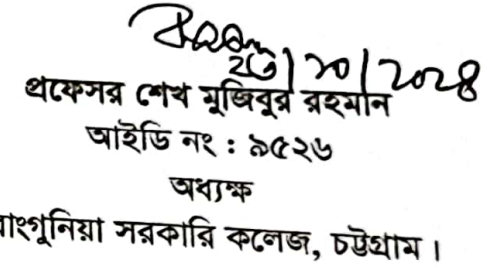 ২৩/১০/২০২৪
প্রফেসর শেখ মুজিবুর রহমান
আইডি নং : ৯৫২৬
অধ্যক্ষ
রাংগুনিয়া সরকারি কলেজ, চট্টগ্রাম।